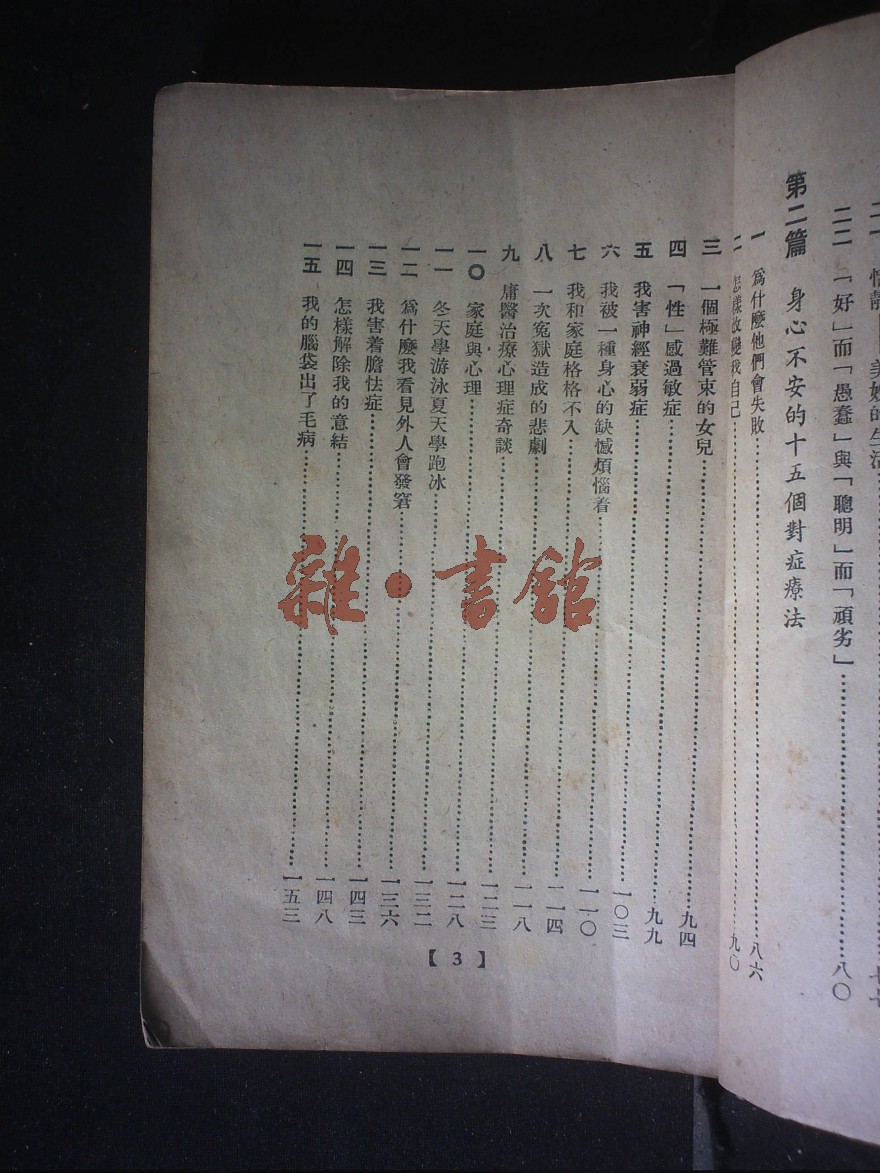 美妙的生活
二二 「好」而「愚蠢」與「聰明」而「頑劣」……八〇
第二篇 身心不安的十五個對症療法
一 爲什麼他們會失敗……八六
二 怎樣改變我自己……九〇
三 一個極難管束的女兒……九四
四 「性」感過敏症……九九
五 我害神經衰弱症……一〇三
六 我被一種身心的缺憾煩惱着……一一〇
七 我和家庭格格不入……一一四
八 一次冤獄造成的悲劇……一一八
九 庸醫治療心理症奇談……一二三
一〇 家庭與心理……一二八
一一 冬天學游泳夏天學跑冰……一三二
一二 爲什麼我看見外人會發窘……一三六
一三 我害着膽怯症……一四三
一四 怎樣解除我的意結……一四八
一五 我的腦袋出了毛病……一五三
【3】
雜·書館